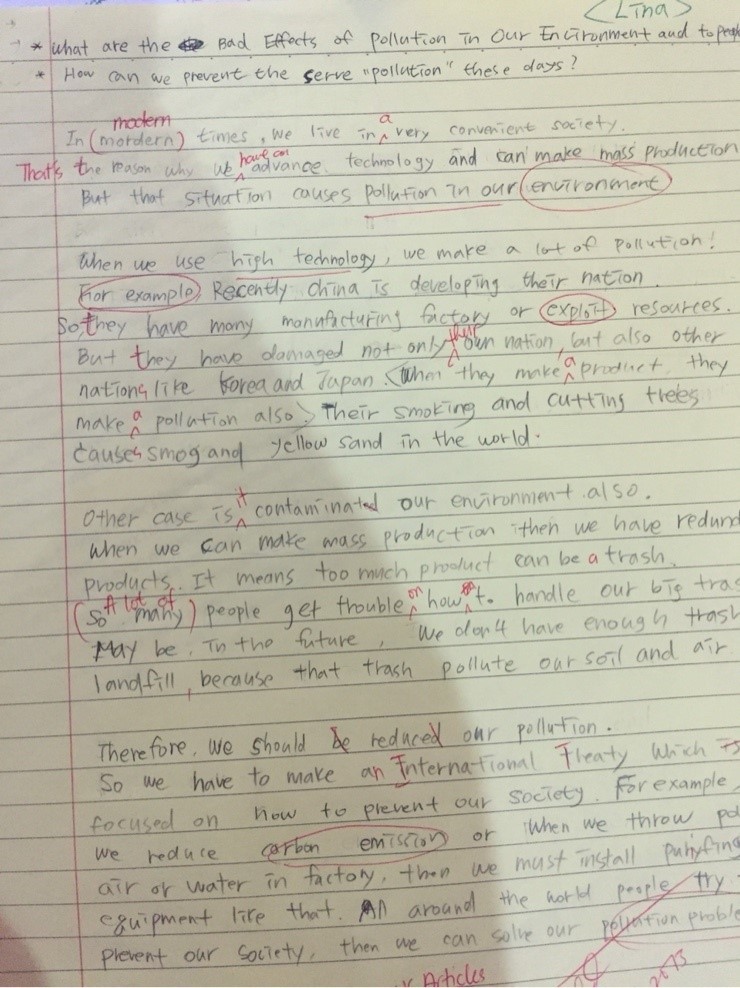 <Lina>
* What are the Bad Effects of pollution in Our Environment and to
* How can we prevent the serve "pollution" these days?
modern a
In (mordern) times, we live in very convenient society.
have an
That's the reason why we advance technology and can make mass production
But that situation causes pollution in our environment
When we use high technology, we make a lot of pollution!
For example, Recently china is developing their nation.
So, they have many manufacturing factory or exploit resources.
their
But they have damaged not only own nation, but also other
a
nations like Korea and Japan. When they make product, they
a
make pollution also. Their smoking and cutting trees
causes smog and yellow sand in the world.
it
Other case is contaminated our environment also.
When we can make mass production then we have redund
products. It means too much product can be a trash.
A lot of on
(So many) people get trouble how to handle our big tras
May be, in the future, We don't have enough trash
landfill, because that trash pollute our soil and air
Therefore, we should be reduced our pollution.
So we have to make an International Treaty which is
focused on how to prevent our society. For example,
we reduce carbon emission or when we throw pol
air or water in factory, then we must install purifing
equipment like that. All around the world people try
prevent our society, then we can solve our pollution proble
Articles